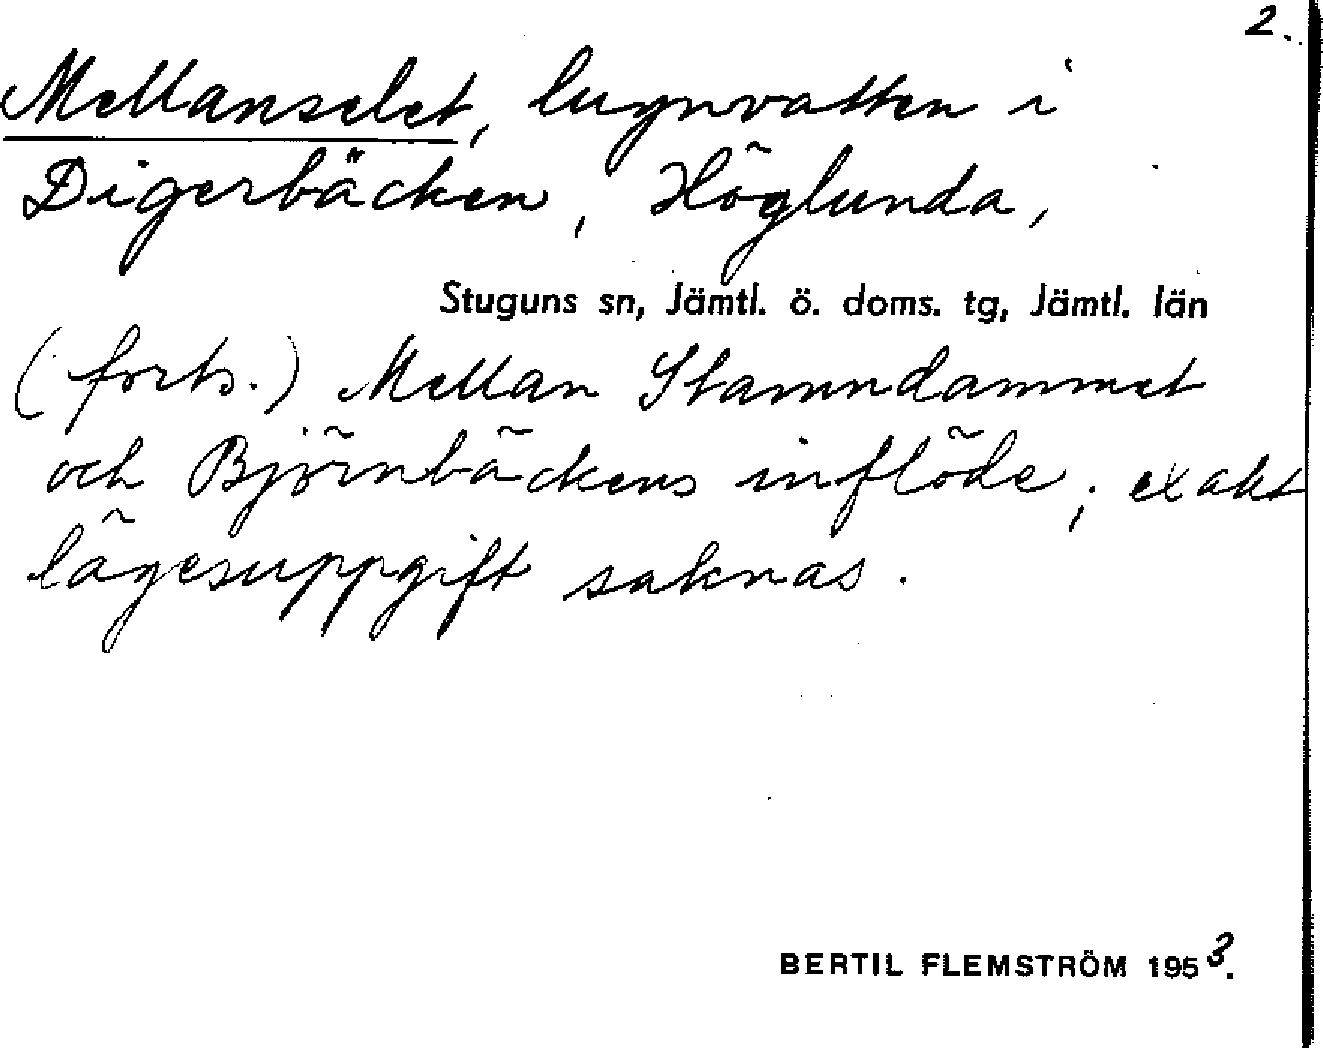 2.
Mellanselet, lugnvatten i
Digerbäcken, Höglunda,
Stuguns sn, Jämtl. ö. doms. tg, Jämtl. län
(forts.) Mellan Stamndammet
och Björnbäckens inflöde; exakt
lägesuppgift saknas.
BERTIL FLEMSTRÖM 1953.